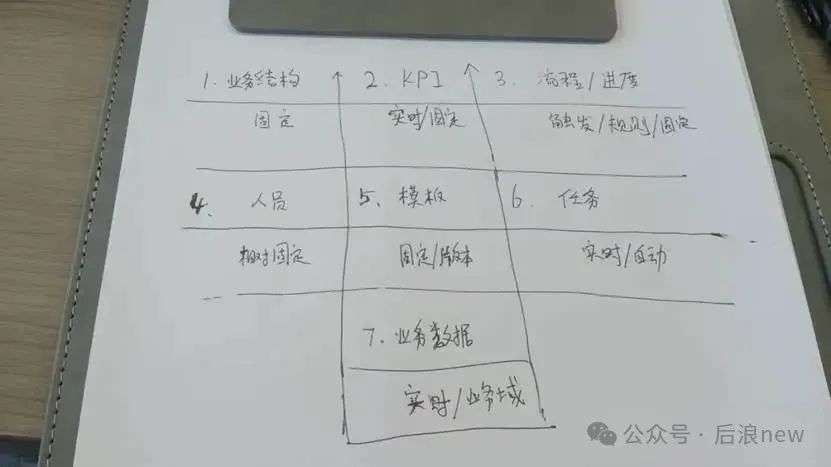 1. 业务结构 2. KPI 3. 流程/进度
固定 实时/固定 触发/规则/固定
4. 人员 5. 模板 6. 任务
相对固定 固定/版本 实时/自动
7. 业务数据
实时/业务域
公众号·后浪new